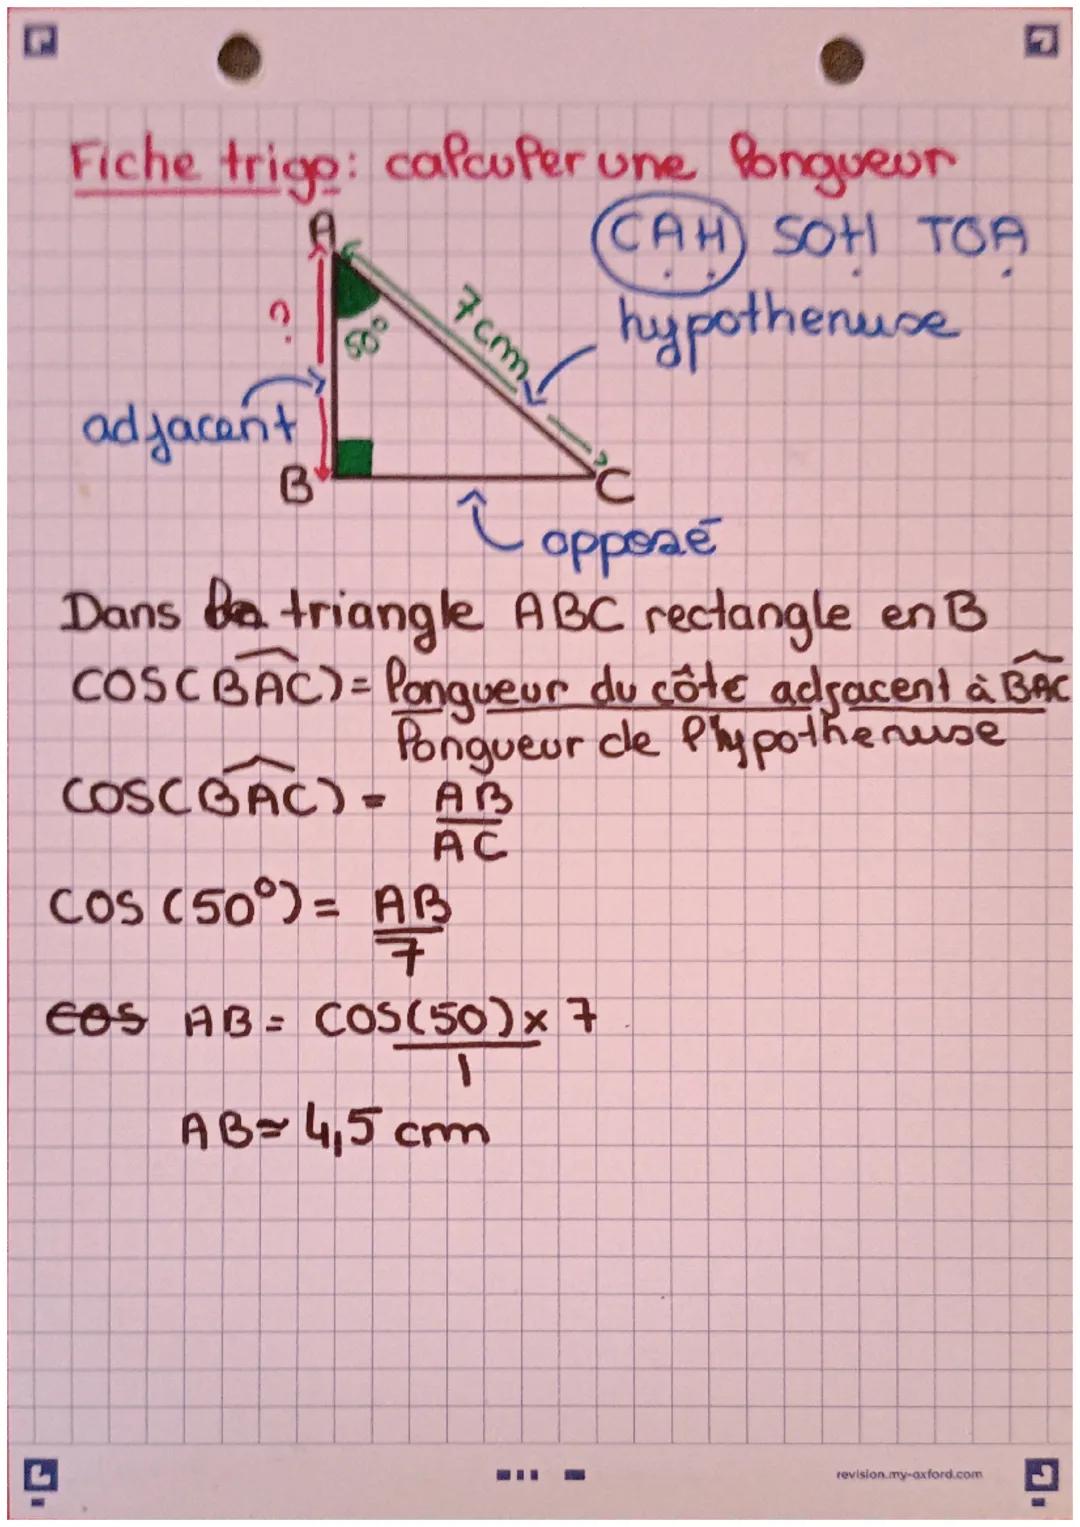 Fiche trigo: calculer une longueur
A
CAH SOH TOA
?
50°
7cm
hypothenuse
adjacent
B
C
opposé
Dans le triangle ABC rectangle en B
COS(BAC) = longueur du côté adjacent à BAC
longueur de l'hypothenuse
COS(BAC) = AB
AC
COS (50°) = AB
7
cos AB = COS(50) x 7
1
AB ≃ 4,5 cm
revision.my-oxford.com